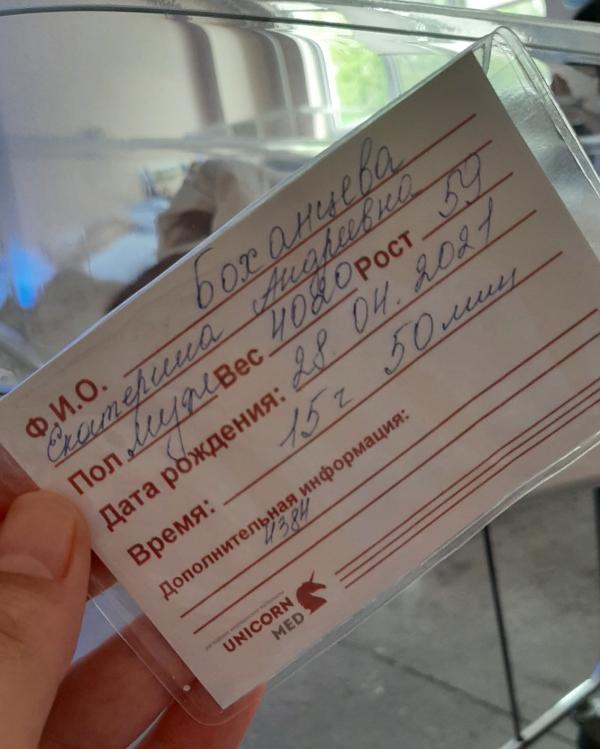 Ф.И.О. Боханцева
Екатерина Андреевна
Пол муж Вес 4020 Рост 59
Дата рождения: 28.04.2021
Время: 15 г 50 мин
Дополнительная информация:
4384
UNICORN
MED